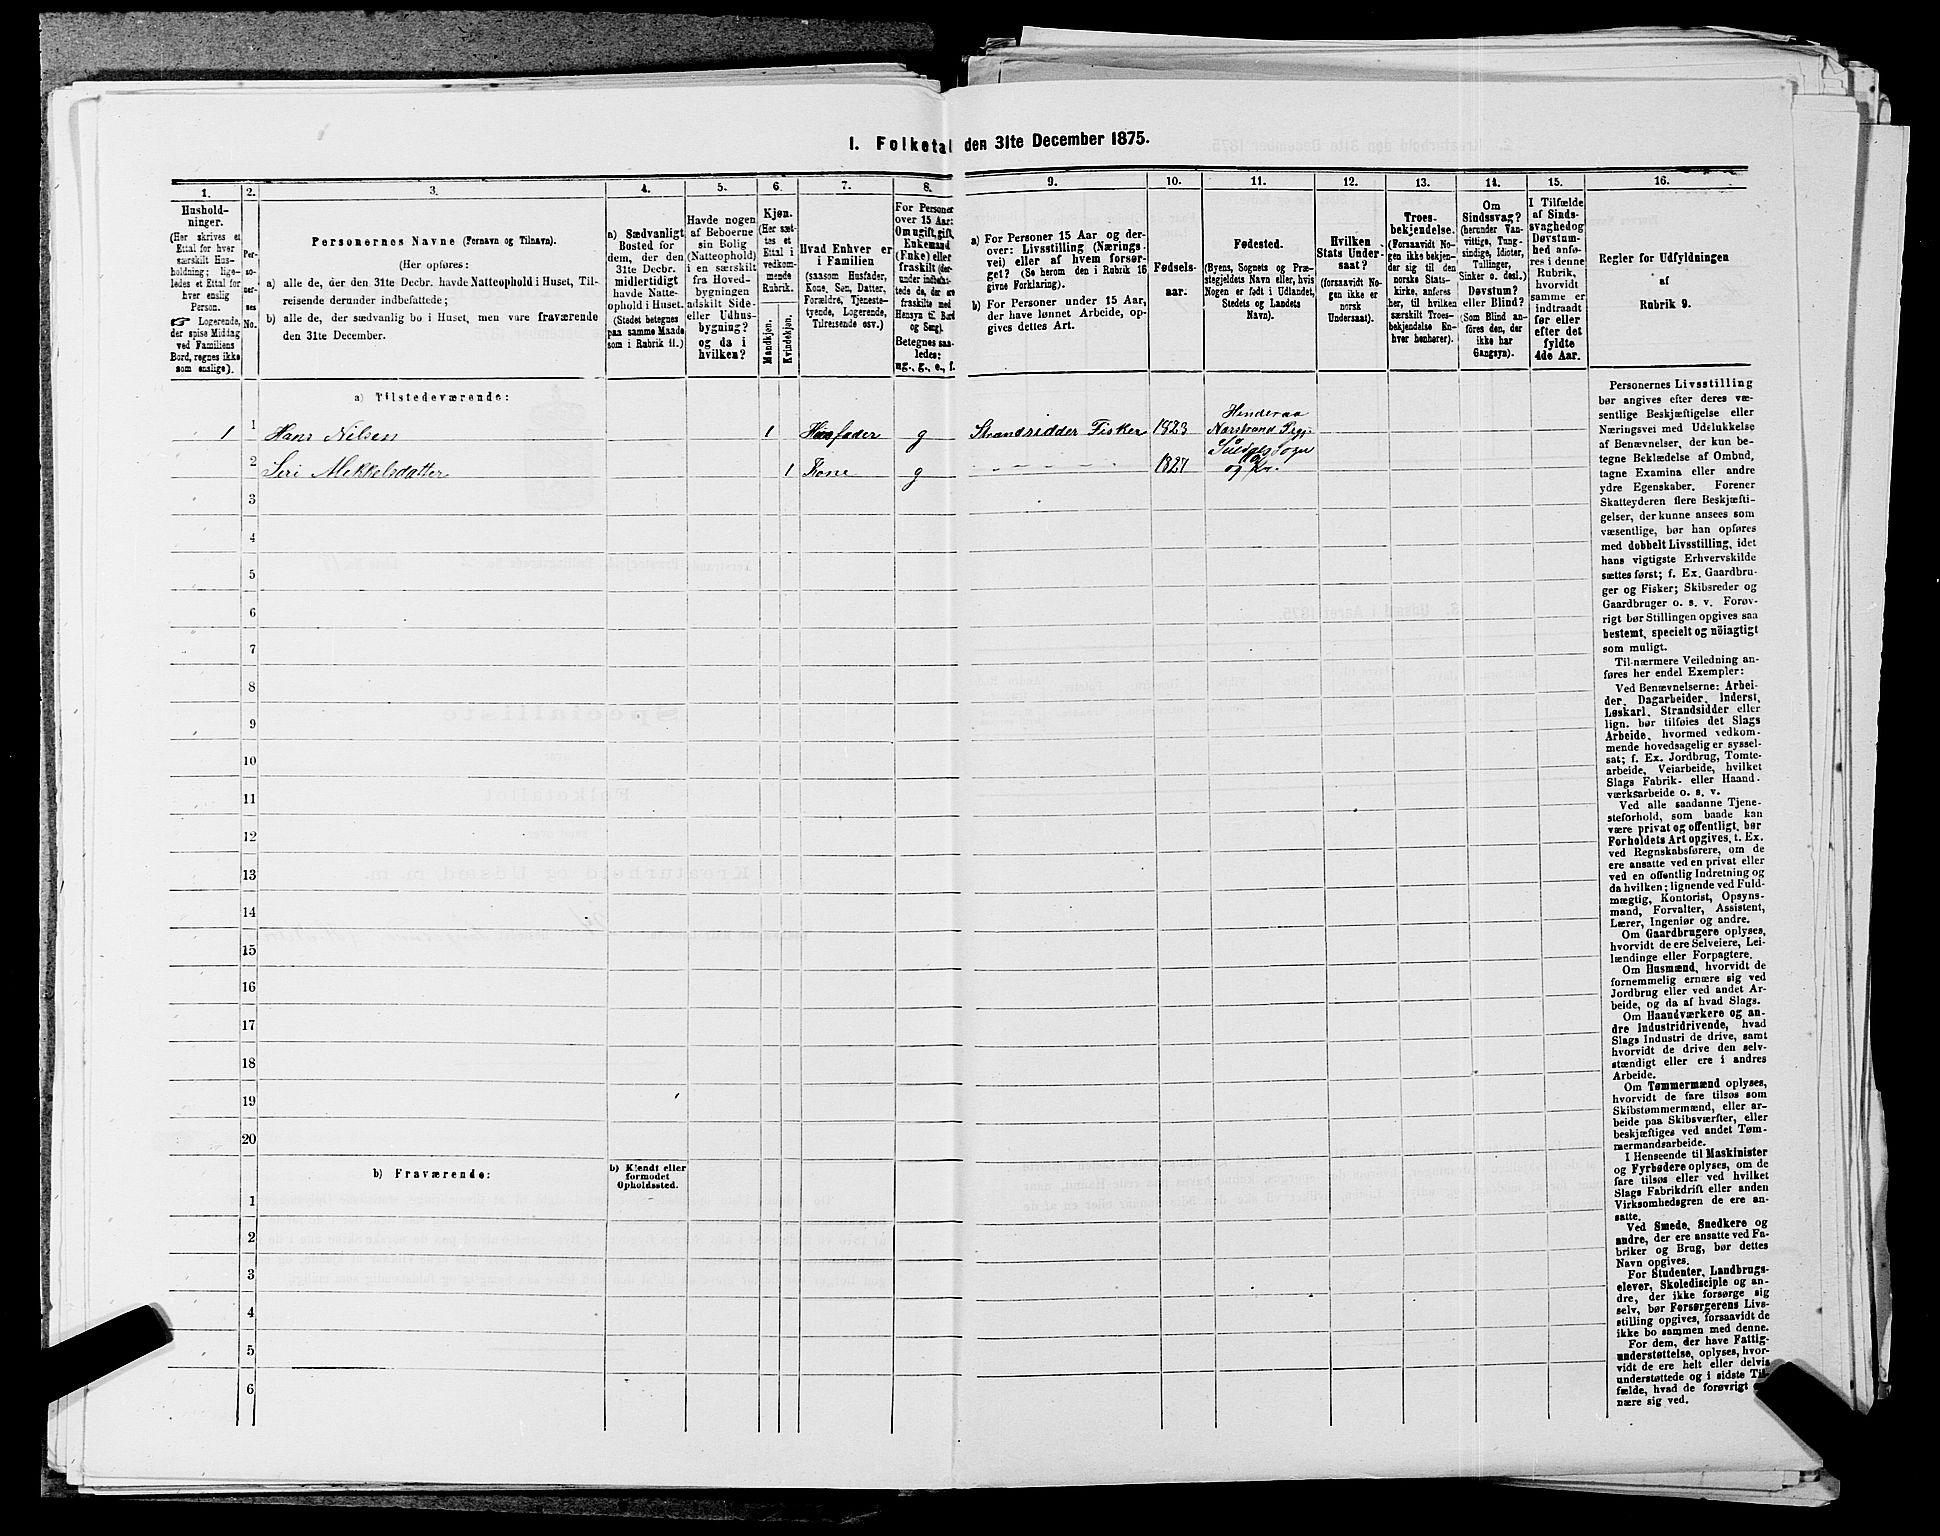 1. Folketal den 31te December 1875.
1.
Hushold-
ninger.
(Her skrives et
Ettal for hver
særskilt Hus-
holdning; lige-
ledes et Ettal for
hver enslig
Person.
☞ Logerende,
der spise Middag
ved Familiens
Bord, regnes ikke
som enslige).
2.
Per-
so-
ner-
nes
No.
3.
Personernes Navne (Fornavn og Tilnavn).
(Her opføres:
a) alle de, der den 31te Decbr. havde Natteophold i Huset, Til-
reisende derunder indbefattede;
b) alle de, der sædvanlig bo i Huset, men vare fraværende
den 31te December.
4.
a) Sædvanligt
Bosted for
dem, der den
31te Decbr.
midlertidigt
havde Natte-
ophold i Huset.
(Stedet betegnes
paa samme Maade
som i Rubrik 11.)
5.
Havde nogen
af Beboerne
sin Bolig
(Natteophold)
i en særskilt
fra Hoved-
bygningen
adskilt Side-
eller Udhus-
bygning?
og da i
hvilken?
6.
Kjøn.
(Her sæt-
tes et
Ettal i
vedkom-
mende
Rubrik.
Mandkjøn.
Kvindekjøn.
7.
Hvad Enhver er
i Familien
(saasom Husfader,
Kone, Søn, Datter,
Forældre, Tjeneste-
tyende, Logerende,
Tilreisende osv.)
8.
For Personer
over 15 Aar:
Om ugift, gift,
Enkemand
(Enke) eller
fraskilt (der-
under indbefat-
tede de, der ere
fraskilte med
Hensyn til Bord
og Seng).
Betegnes saa-
ledes:
ug., g., e., f.
9.
a) For Personer 15 Aar og der-
over: Livsstilling (Nærings-
vei) eller af hvem forsør-
get? (Se herom den i Rubrik 16
givne Forklaring).
b) For Personer under 15 Aar,
der have lønnet Arbeide, op-
gives dettes Art.
10.
Fødsels-
aar.
11.
Fødested.
(Byens, Sognets og Præ-
stegjeldets Navn eller, hvis
Nogen er født i Udlandet,
Stedets og Landets
Navn).
12.
Hvilken
Stats Under-
saat?
(forsaavidt No-
gen ikke er
norsk
Undersaat).
13.
Troes-
bekjendelse.
(Forsaavidt No-
gen ikke bekjen-
der sig til den
norske Stats-
kirke, anføres
her, til hvilken
særskilt Troes-
bekjendelse En-
hver henhører).
14.
Om
Sindssvag?
(herunder Van-
vittige, Tung-
sindige, Idioter,
Tullinger,
Sinker o. desl.)
Døvstum?
eller Blind?
(Som Blind an-
føres den, der
ikke har
Gangsyn).
15.
I Tilfælde
af Sinds-
svaghed og
Døvstum-
hed anfø-
res i denne
Rubrik,
hvorvidt
samme er
indtraadt
før eller
efter det
fyldte
4de Aar.
16.
Regler for Udfyldningen
af
Rubrik 9.
a) Tilstedeværende:
1 1 Hans Nilsen 1 Husfader g Strandsidder Fisker 1823 Hinderaa
Narstrand Prgj.
2 Seri Mekkelsdatter 1 Kone g - - - - - - 1827 Suldals Sogn
og Pr.
3
4
5
6
7
8
9
10
11
12
13
14
15
16
17
18
19
20
b) Fraværende:
b) Kjendt eller
formodet
Opholdssted.
1
2
3
4
5
6
Personernes Livsstilling
bør angives efter deres væ-
sentlige Beskjæftigelse eller
Næringsvei med Udelukkelse
af Benævnelser, der kun be-
tegne Beklædelse af Ombud,
tagne Examina eller andre
ydre Egenskaber. Forener
Skatteyderen flere Beskjæfti-
gelser, der kunne ansees som
væsentlige, bør han opføres
med dobbelt Livsstilling, idet
hans vigtigste Erhvervskilde
sættes først; f. Ex. Gaardbru-
ger og Fisker; Skibsreder og
Gaardbruger o. s. v. Forøv-
rigt bør Stillingen opgives saa
bestemt, specielt og nöiagtigt
som muligt.
Til nærmere Veiledning an-
føres her endel Exempler:
Ved Benævnelserne: Arbei-
der, Dagarbeider, Inderst,
Løskarl, Strandsidder eller
lign. bør tilføies det Slags
Arbeide, hvormed vedkom-
mende hovedsagelig er syssel-
sat; f. Ex. Jordbrug, Tomte-
arbeide, Veiarbeide, hvilket
Slags Fabrik- eller Haand-
værksarbeide o. s. v.
Ved alle saadanne Tjene-
steforhold, som baade kan
være privat og offentligt, bør
Forholdets Art opgives, t. Ex.
ved Regnskabsførere, om de
ere ansatte ved en privat eller
ved en offentlig Indretning og
da hvilken; lignende ved Fuld-
mægtig, Kontorist, Opsyns-
mand, Forvalter, Assistent,
Lærer, Ingeniør og andre.
Om Gaardbrugere oplyses,
hvorvidt de ere Selveiere, Lei-
lændinge eller Forpagtere.
Om Husmænd, hvorvidt de
fornemmelig ernære sig ved
Jordbrug eller ved andet Ar-
beide, og da af hvad Slags.
Om Haandværkere og an-
dre Industridrivende, hvad
Slags Industri de drive, samt
hvorvidt de drive den selv-
stændigt eller ere i andres
Arbeide.
Om Tømmermænd oplyses,
hvorvidt de fare tilsøs som
Skibstømmermænd, eller ar-
beide paa Skibsværfter, eller
beskjæftiges ved andet Tøm-
mermandsarbeide.
I Henseende til Maskinister
og Fyrbødere oplyses, om de
fare tilsøs eller ved hvilket
Slags Fabrikdrift eller anden
Virksomhedsgren de ere an-
satte.
Ved Smede, Snedkere og
andre, der ere ansatte ved Fa-
briker og Brug, bør dettes
Navn opgives.
For Studenter, Landbrugs-
elever, Skoledisciple og an-
dre, der ikke forsørge sig
selv, bør Forsørgerens Livs-
stilling opgives, forsaavidt de
ikke bo sammen med denne.
For dem, der have Fattig-
understøttelse, oplyses, hvor-
vidt de ere helt eller delvis
understøttede og i sidste Til-
fælde, hvad de forøvrigt
nære sig ved.